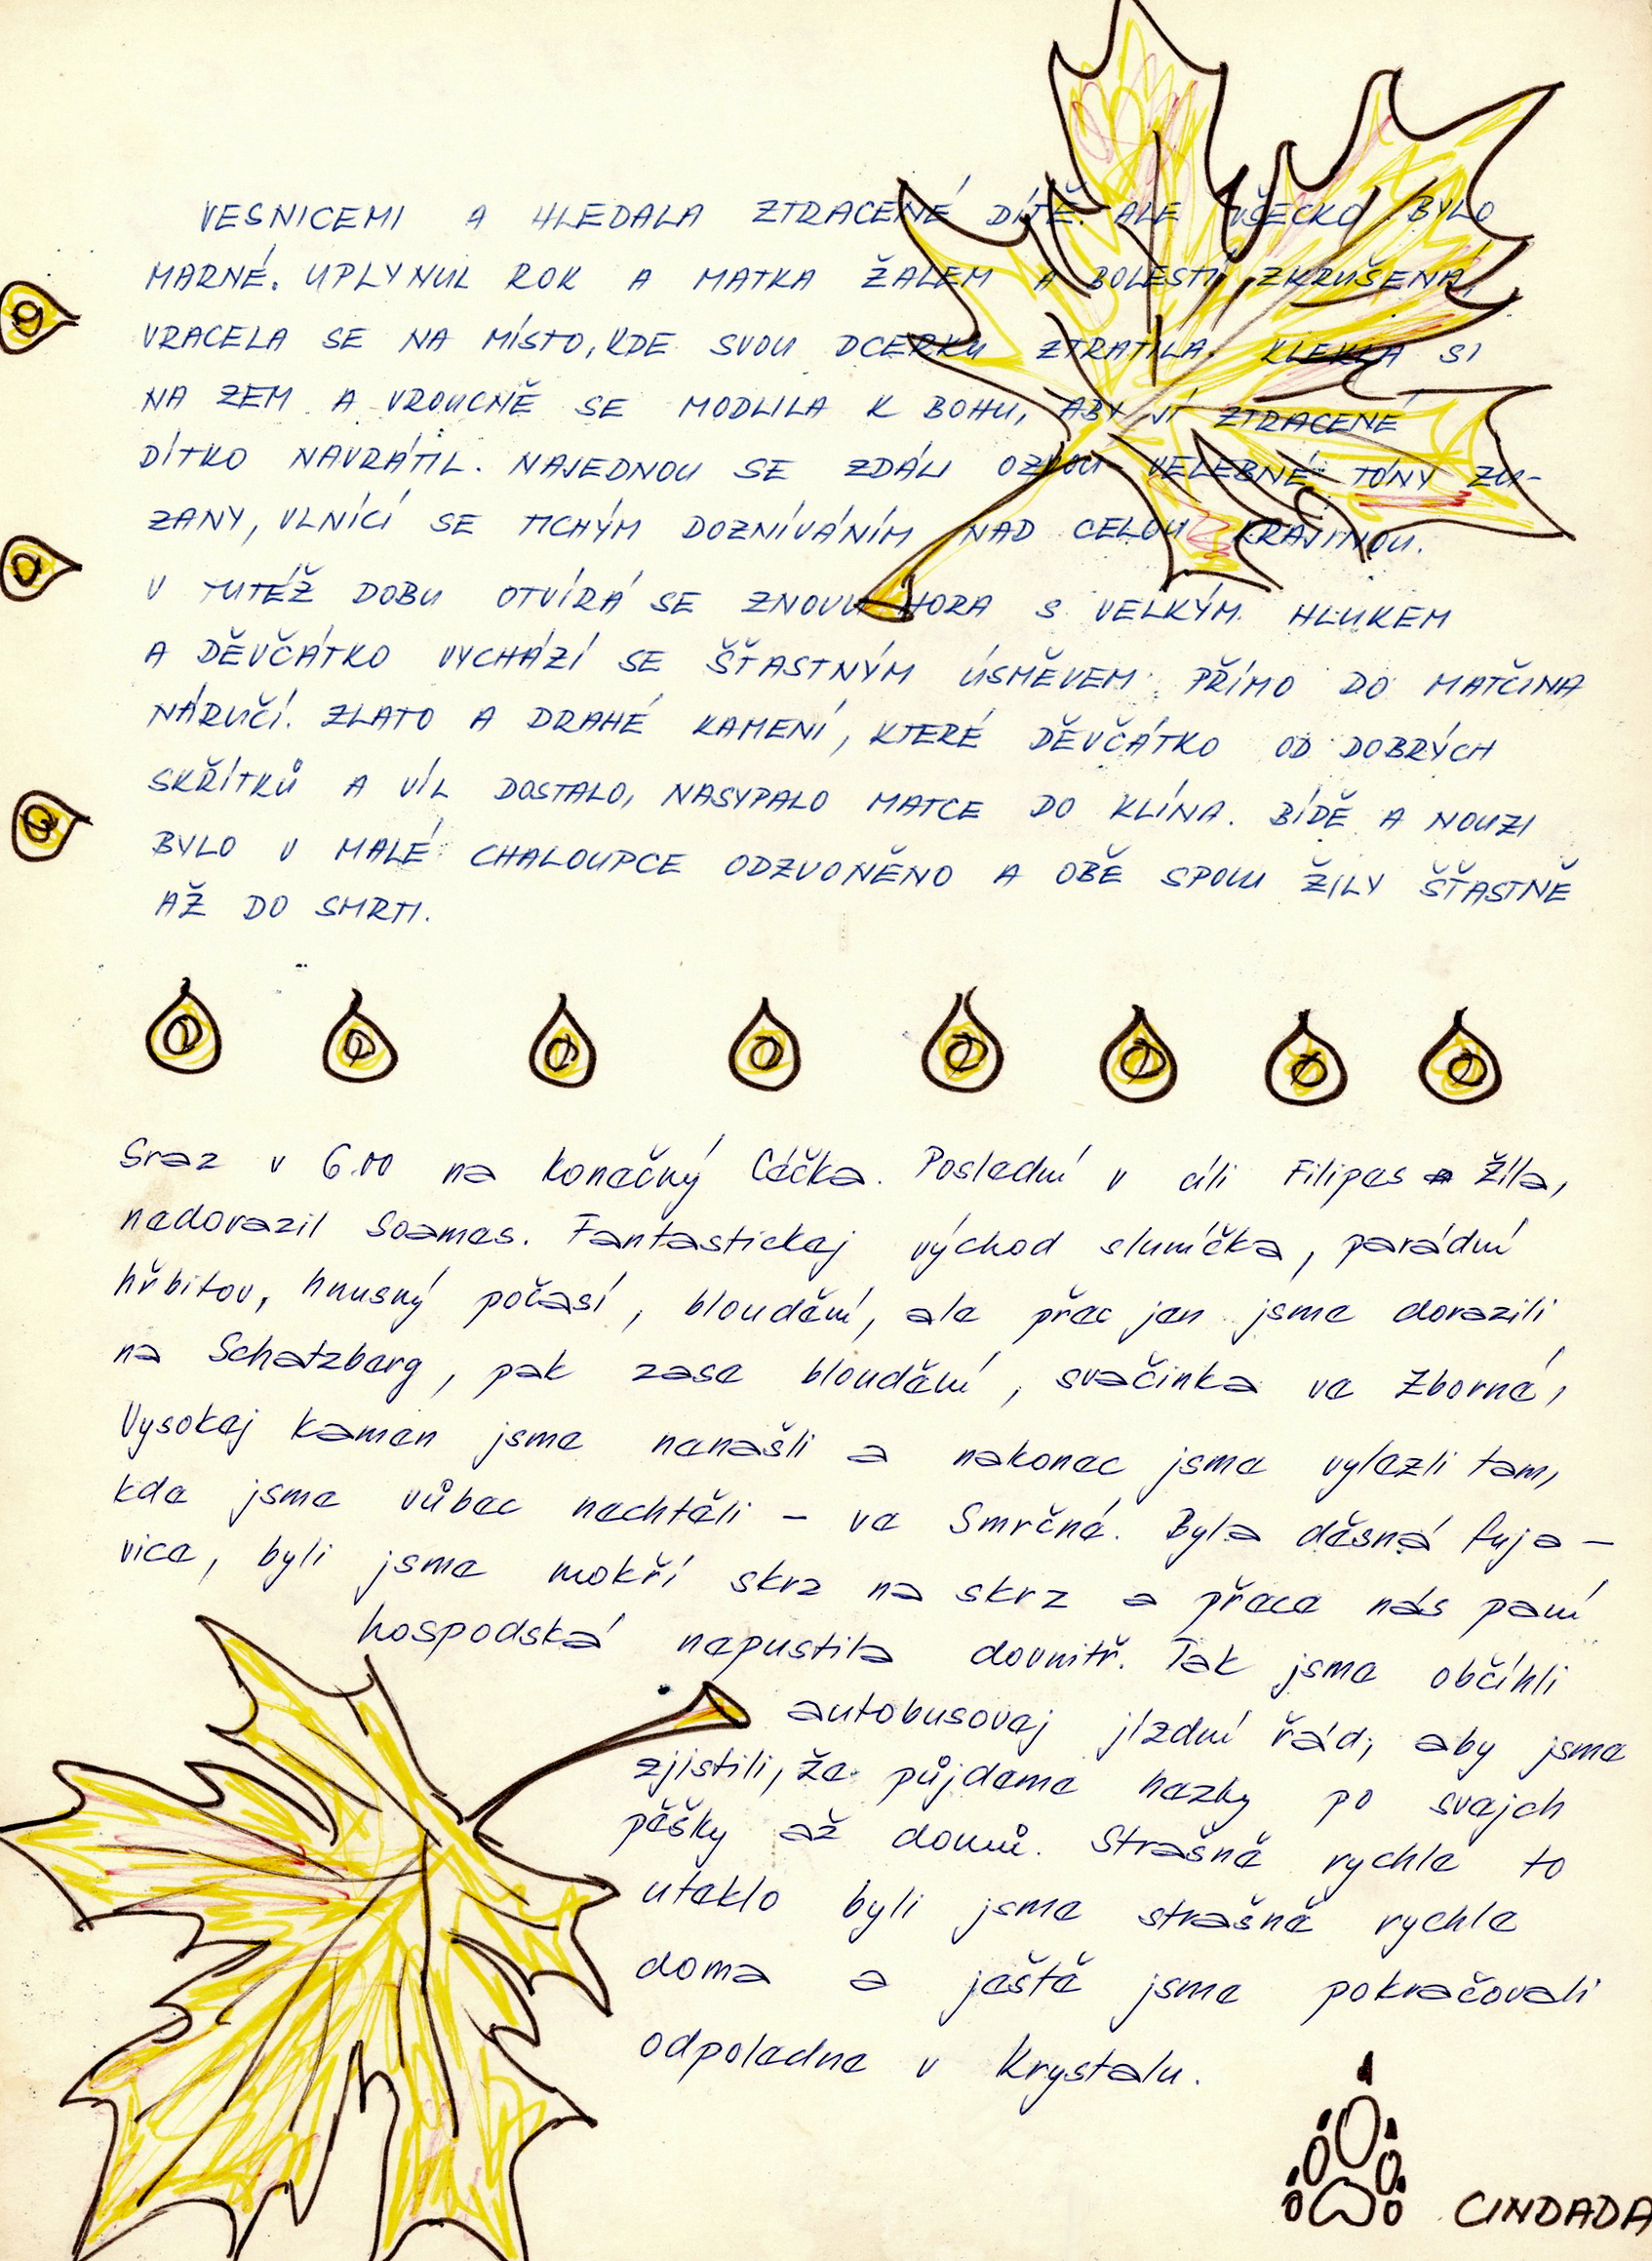 VESNICEMI A HLEDALA ZTRACENÉ DÍTĚ. ALE VŠECKO BYLO
MARNÉ. UPLYNUL ROK A MATKA ŽALEM A BOLESTÍ ZKRUŠENA,
VRACELA SE NA MÍSTO, KDE SVOU DCERKU ZTRATILA. KLEKLA SI
NA ZEM A VROUCNĚ SE MODLILA K BOHU, ABY JÍ ZTRACENÉ
DÍTKO NAVRÁTIL. NAJEDNOU SE ZDÁLI OZVOU VELEBNÉ TÓNY ZU-
ZANY, VLNÍCÍ SE TICHÝM DOZNÍVÁNÍM NAD CELOU KRAJINOU.
V TUTÉŽ DOBU OTVÍRÁ SE ZNOVU HORA S VELKÝM HLUKEM
A DĚVČÁTKO VYCHÁZÍ SE ŠŤASTNÝM ÚSMĚVEM PŘÍMO DO MATČINA
NÁRUČÍ. ZLATO A DRAHÉ KAMENÍ, KTERÉ DĚVČÁTKO OD DOBRÝCH
SKŘÍTKŮ A VÍL DOSTALO, NASYPALO MATCE DO KLÍNA. BÍDĚ A NOUZI
BYLO V MALÉ CHALOUPCE ODZVONĚNO A OBĚ SPOLU ŽILY ŠŤASTNĚ
AŽ DO SMRTI.
Sraz v 6.00 na konečný Céčka. Poslední v cíli Filipes Žíla,
nedorazil Soames. Fantastickej východ sluníčka, parádní
hřbitov, hnusný počasí, bloudění, ale přec jen jsme dorazili
na Schatzberg, pak zase bloudění, svačinka ve Zborné,
Vysokej kamen jsme nenašli a nakonec jsme vylezli tam,
kde jsme vůbec nechtěli - ve Smrčné. Byla děsná fuja-
vice, byli jsme mokří skrz na skrz a přece nás paní
hospodská nepustila dovnitř. Tak jsme občíhli
autobusovej jízdní řád, aby jsme
zjistili, že půjdeme hezky po svejch
pěšky až domů. Strašně rychle to
uteklo byli jsme strašně rychle
doma a ještě jsme pokračovali
odpoledne v Krystalu.
CINDADA